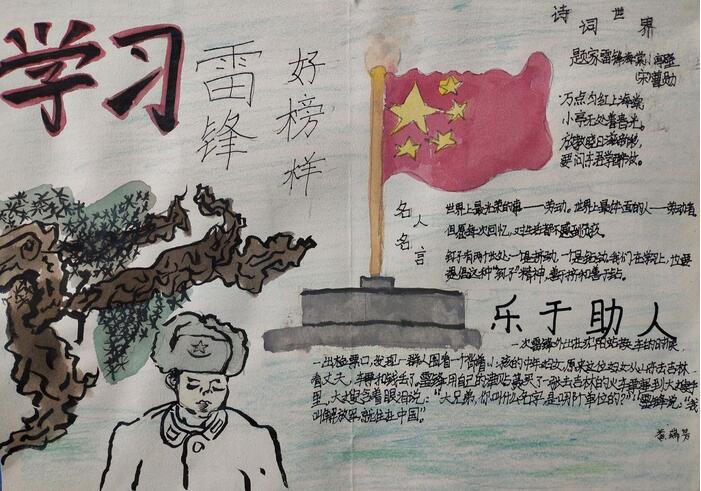 学习
雷锋
好榜样
诗词世界
万点匀红上海棠
小亭无处着春光
名人名言
世界上最光荣的事——劳动。世界上最体面的人——劳动者
但愿每次回忆，对生活都不感到负疚
钉子有两个长处：一是挤劲，一个是钻劲，我们在学习上，也要
提倡这种“钉子”精神，善于挤和善于钻。
乐于助人
一次雷锋外出在沈阳站换车的时候
一出检票口，发现一群人围着一个背着小孩的中年妇女，原来这位妇女从山东去吉林
看丈夫，车票和钱丢了。雷锋用自己的津贴费买了一张去吉林的火车票塞到大嫂手
里，大嫂含着眼泪说：“大兄弟，你叫什么名字，是哪个单位的？”雷锋说：“我
叫解放军，就住在中国”。